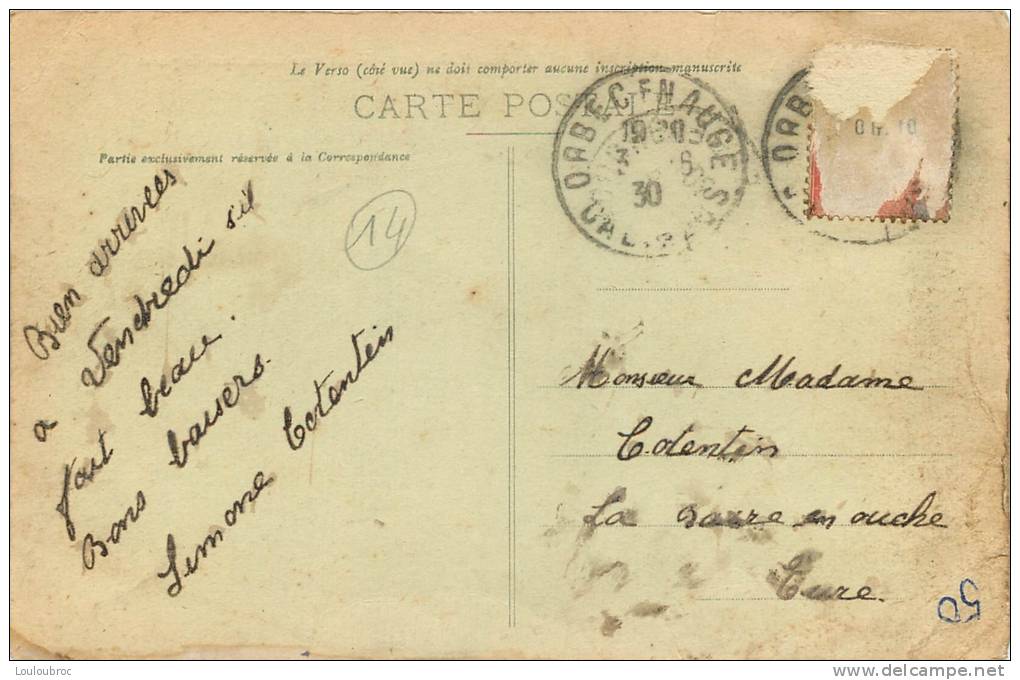 Le Verso (côté vue) ne doit comporter aucune inscription manuscrite
CARTE POSTALE
Partie exclusivement réservée à la Correspondance
14
Bien arrivées
a Vendredi s'il
fait beau.
Bons baisers.
Simone Cotentin
ORBEC-EN-AUGE
30
CALV
ORB
Monsieur Madame
Cotentin
La Barre en ouche
Eure.
50
Louloubroc
www.delcampe.net